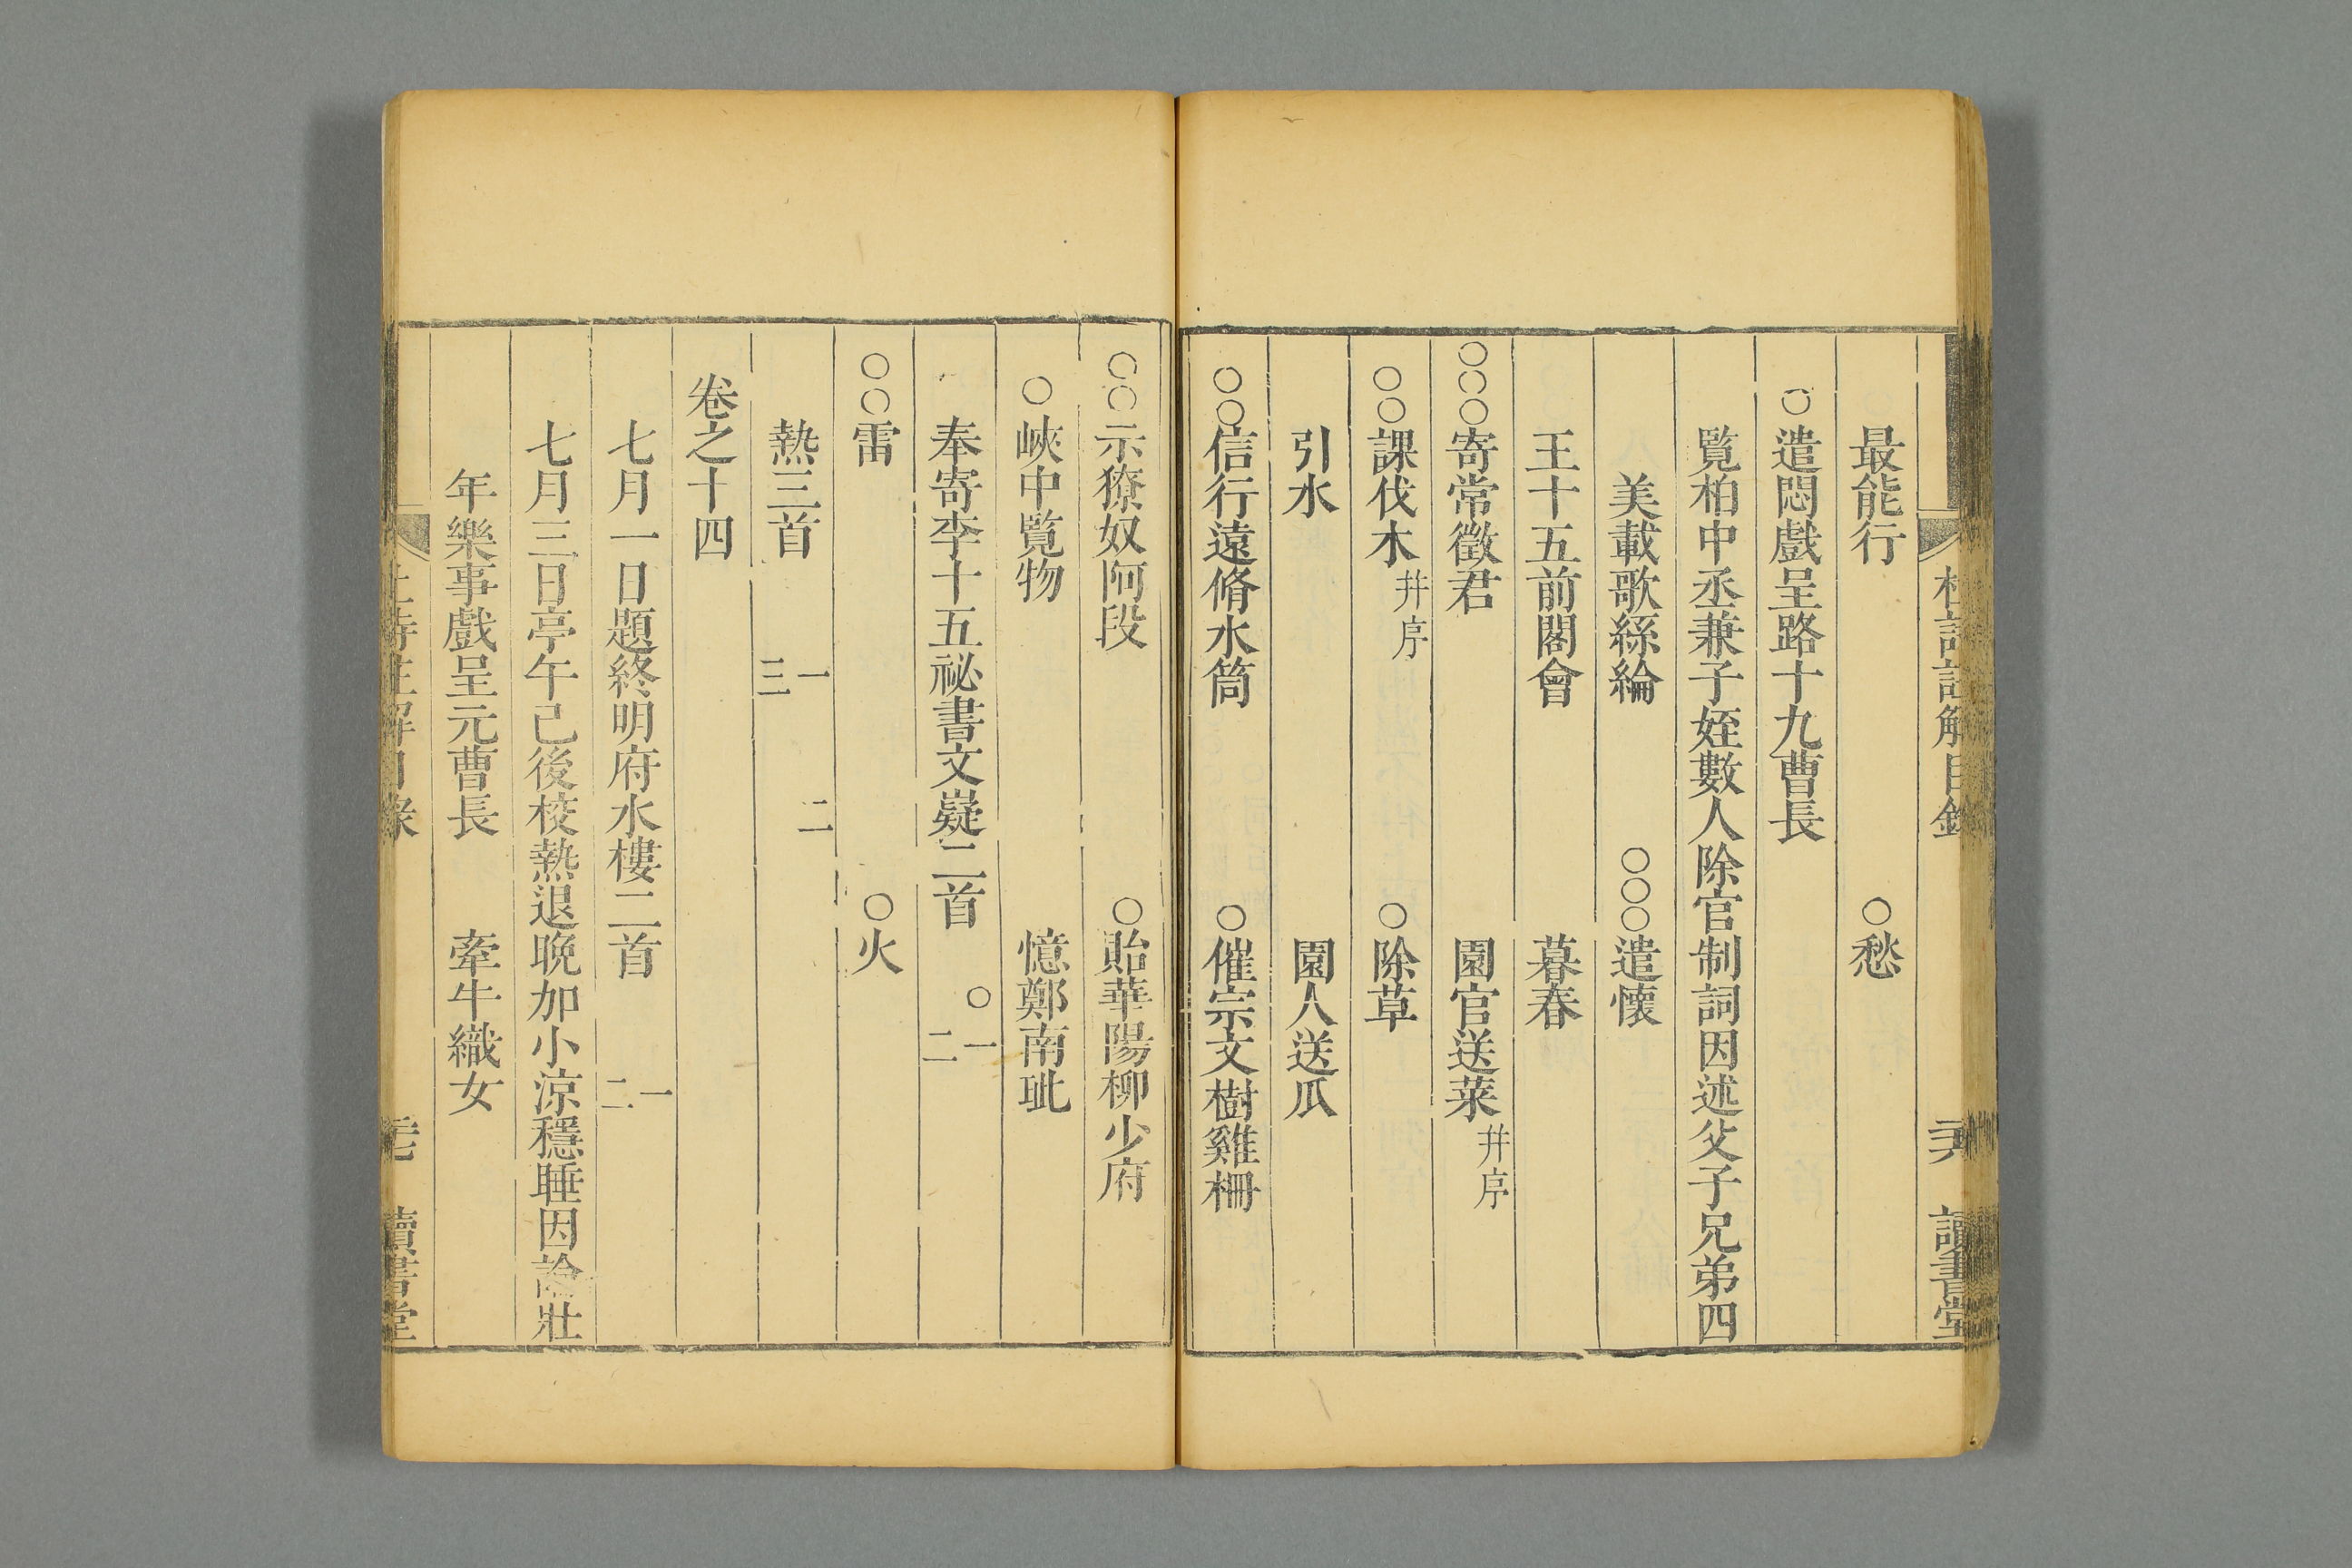 杜詩註解目錄 二六 讀書堂
最能行 ○愁
○遣悶戲呈路十九曹長
覽柏中丞兼子姪數人除官制詞因述父子兄弟四
美載歌絲綸 ○○○遣懷
王十五前閣會 暮春
○○○寄常徵君 園官送菜 并序
○○課伐木 并序 ○除草
引水 園人送瓜
○○信行遠脩水筒 ○催宗文樹雞柵
○○示獠奴阿段 ○貽華陽柳少府
○峽中覽物 憶鄭南玼
奉寄李十五祕書文嶷二首 ○一 二
○○雷 ○火
熱三首 一 二 三
卷之十四
七月一日題終明府水樓二首 一 二
七月三日亭午已後校熱退晚加小涼穩睡因論壯
年樂事戲呈元曹長 牽牛織女
杜詩註解目錄 二七 讀書堂